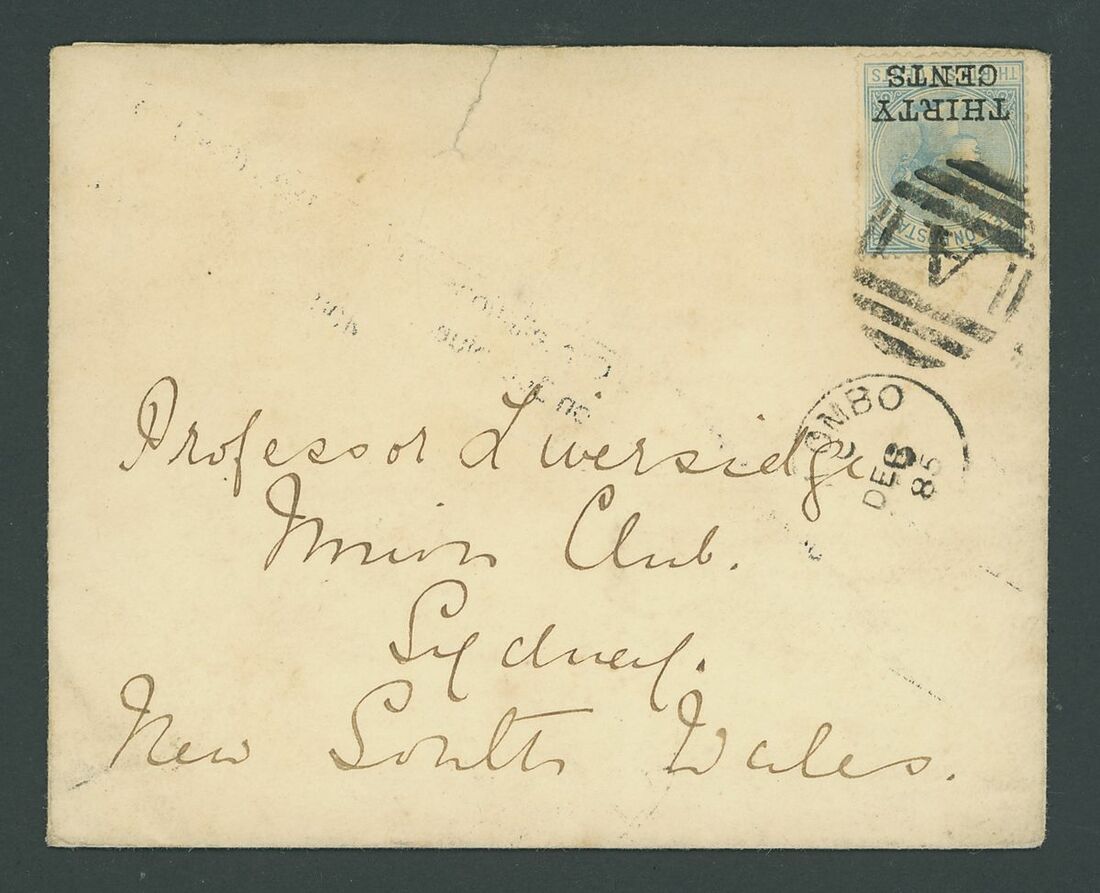 THIRTY
CENTS
A
OMBO
DE 8
85
Professor Liversidge
Union Club.
Sydney.
New South Wales.